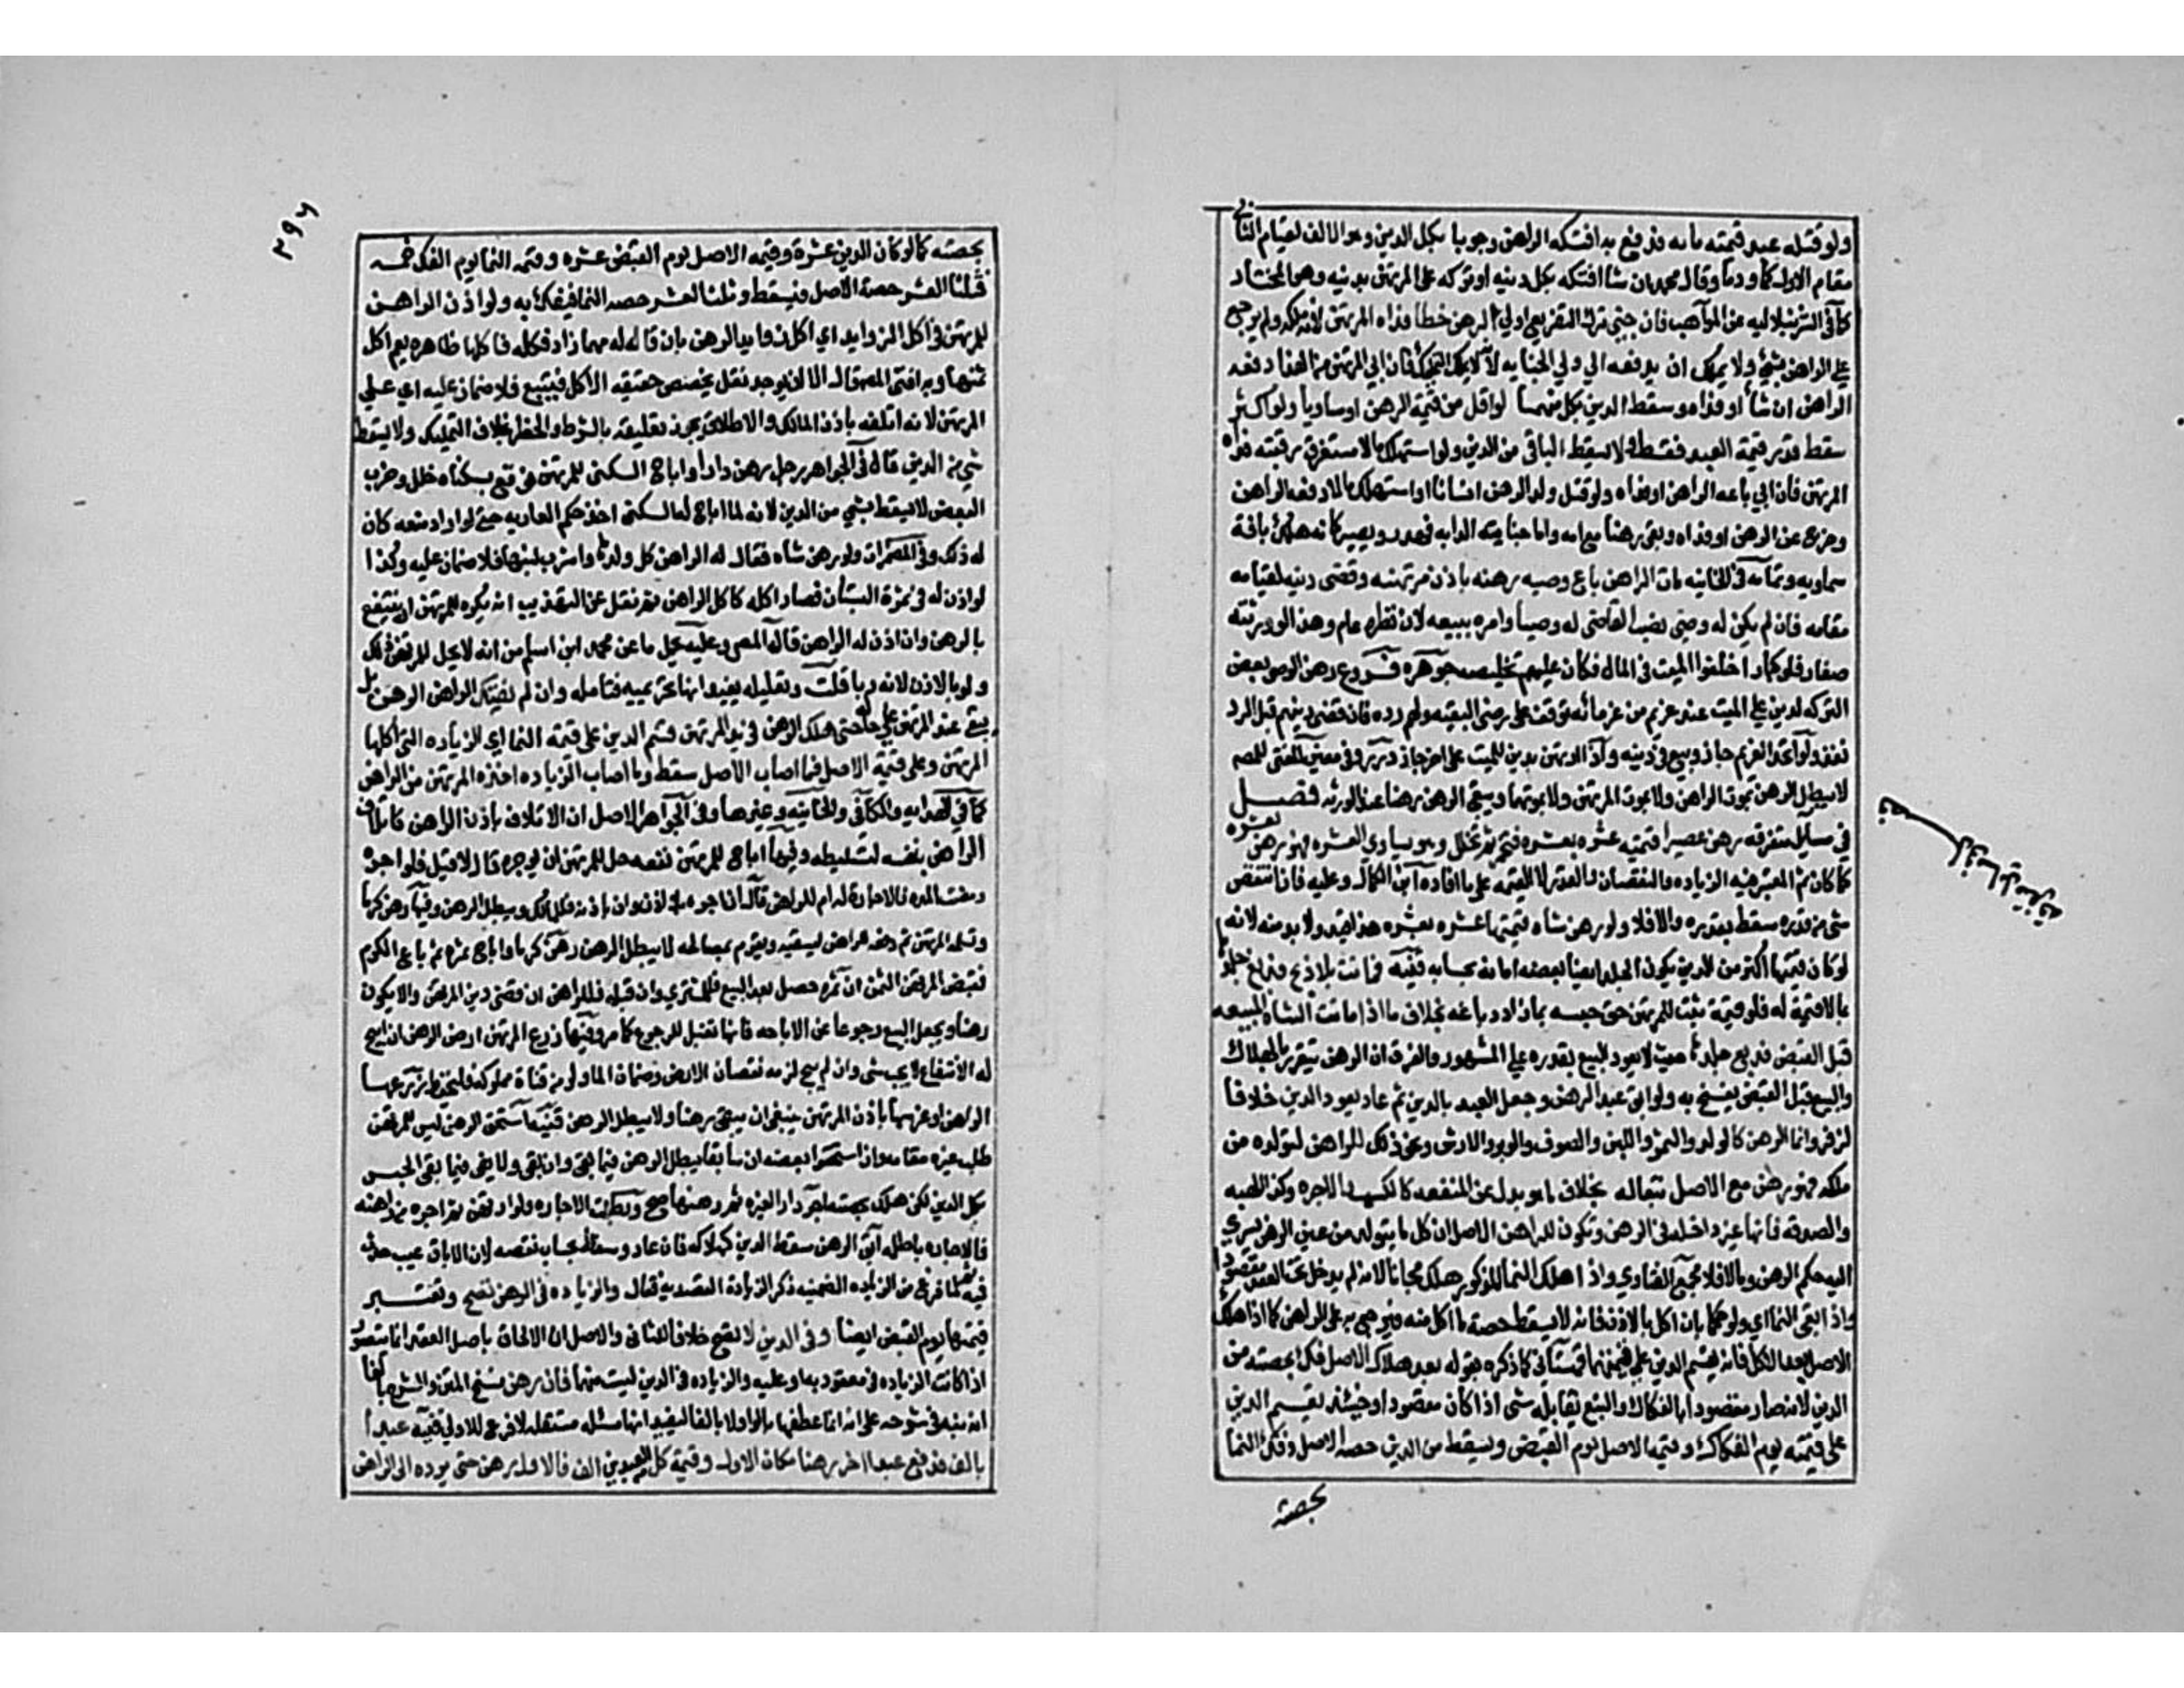 ولو قتله عبد قيمته مائه فدفع به افتكه الراهن وجوبا بكل الدين وهو الالف لقيام الثاني
مقام الاول كما ودما وقال محمد ان شا افتكه بكل دينه او تركه على المرتهن بدينه وهو المختار
كما في الشرنبلاليه عن المواهب فان جنى الرهن خطا فداه المرتهن لانه ملكه ولم يرجع
على الراهن بشئ ولا يملك ان يدفعه الى ولي الجنايه لانه لا يملك التمليك فان ابى المرتهن من الفدا دفعه
الراهن ان شا او فداه وسقط الدين بكل منهما لو اقل من قيمة الرهن او مساويا ولو اكثر
سقط قدر قيمة العبد فقط ولا يسقط الباقي من الدين ولو استهلك مالا يستغرق رقبته فداه
المرتهن فان ابى باعه الراهن او فداه ولو قتل ولد الرهن انسانا او استهلك مالا دفعه الراهن
وخرج عن الرهن او فداه وبقي رهنا مع امه واما جناية الدابه فهدر ويصير كانه هلك بافة
سماويه وتمامه في الخانيه مات الراهن باع وصيه رهنه باذن مرتهنه وقضى دينه لقيامه
مقامه فان لم يكن له وصي نصب القاضي له وصيا وامره ببيعه لان نظره عام وهذا لو ورثته
صغار فلو كبارا خلفوا الميت في المال فكان عليهم تخليصه جوهره فروع رهن الوصي بعض
التركه لدين على الميت عند غريم من غرمائه توقف على رضى البقيه ولهم رده فان قضى دينهم قبل الرد
نفذ ولو اتحد الغريم جاز وبيع في دينه واذا ارتهن بدين للميت على اخر جاز درر وفي معين المفتي للمصـ
لا يبطل الرهن بموت الراهن ولا بموت المرتهن ولا بموتهما ويبقى الرهن رهنا عند الورثه فصل
في مسائل متفرقه رهن عصيرا قيمته عشره بعشره فتخمر ثم تخلل وهو يساوي العشره فهو رهن بعشره
كما كان ثم المعتبر فيه الزياده والنقصان بالقدر لا القيمه على ما افاده ابن الكمال وعليه فان انتقص
شئ من قدره سقط بقدره والا فلا ولو رهن شاه قيمتها عشره بعشره هذا قيد ولا بد منه لانه
لو كان قيمتها اكثر من الدين يكون الجلد ايضا بعضه امانه بحسابه قنيه فماتت بلا ذبح فدبغ جلدها
بما لا قيمة له فلو له قيمة ثبت للمرتهن حق حبسه بما زاد دباغه بخلاف ما اذا ماتت الشاه المبيعه
قبل القبض فدبغ جلدها حيث لا يعود البيع بقدره على المشهور والفرق ان الرهن يتقرر بالهلاك
والبيع قبل القبض يفسخ به ولو ابق عبد الرهن وجعل العبد بالدين ثم عاد يعود الدين خلافا
لزفر ونما الرهن كالولد والثمر واللبن والصوف والوبر والارش ونحو ذلك للراهن لتولده من
ملكه فهو رهن مع الاصل تبعا له بخلاف ما هو بدل عن المنفعه كالكسب والاجره وكذا الهبه
والصدقه فانها غير داخله في الرهن وتكون للراهن الاصل ان كل ما يتولد من عين الرهن يسري
اليه حكم الرهن وما لا فلا مجمع الفتاوي واذا هلك النما المذكور هلك مجانا لانه لم يدخل تحت العقد مقصودا
واذا بقي النما اي ولو حكما بان اكل بالاذن فانه لا يسقط حصة ما اكل منه فيرجع به على الراهن كما اذا هلك
الاصل بعد الاكل فانه يقسم الدين على قيمتهما كما سياتي كما ذكره بقوله بعد هلاك الاصل فك بحصته من
الدين لانه صار مقصودا بالفكاك والتبع يقابله شئ اذا كان مقصودا وحينئذ يقسم الدين
على قيمته يوم الفكاك وقيمة الاصل يوم القبض ويسقط من الدين حصة الاصل وفك النما
بحصته
فصل في مسائل متفرقه
٢٩٦
بحصته كما لو كان الدين عشرة وقيمه الاصل يوم القبض عشره وقيمه النما يوم الفك خمسه
فثلثا العشر حصة الاصل فيسقط وثلث العشر حصه النما فيفك به ولو اذن الراهن
للمرتهن في اكل الزوايد اي اكل زوايد الرهن بان قال له مهما زاد فكله فاكلها ظاهره يعم اكل
ثمنها وبه افتى المصـ قال الا ان يوجد نقل يخصص حقيقه الاكل فيتبع فلا ضمان عليه اي على
المرتهن لانه اتلفه باذن المالك والاطلاق يجوز تعليقه بالشرط والخطر بخلاف التمليك ولا يسقط
شئ من الدين قال في الجواهر رجل رهن دارا واباح السكنى للمرتهن فوقع بسكناه خلل وخرب
البعض لا يسقط شئ من الدين لانه لما اباح له السكنى اخذ حكم العاريه حتى لو اراد منعه كان
له ذلك وفي المضمرات ولو رهن شاه فقال له الراهن كل ولدها واشرب لبنها فلا ضمان عليه وكذا
لو اذن له في ثمرة البستان فصار اكله كاكل الراهن ثم نقل عن التهذيب انه يكره للمرتهن ان ينتفع
بالرهن وان اذن له الراهن قال المصـ وعليه يحمل ما عن محمد ابن اسلم من انه لا يحل للمرتهن ذلك
ولو بالاذن لانه ربا قلت وتعليله يفيد انها تحريميه فتامله وان لم يفتك الراهن الرهن بل
بقي عند المرتهن على حاله حتى هلك الرهن في يد المرتهن قسم الدين على قيمة النما اي الزياده التي اكلها
المرتهن وعلى قيمة الاصل فما اصاب الاصل سقط وما اصاب الزياده اخذه المرتهن من الراهن
كما في الهدايه والكافي والخانيه وغيرها وفي الجواهر الاصل ان الاتلاف باذن الراهن كاتلاف
الراهن بنفسه لتسليطه وفيها اباح للمرتهن نفعه هل للمرتهن ان يوجره قال لا قيل فلو اجره
ومضت المده فالاجارة له ام للراهن قال له ان اجره بلا اذن وان باذنه فللمالك وبطل الرهن وفيها رهن كرما
وتسلمه المرتهن ثم دفعه للراهن ليسقيه ويقوم بمصالحه لا يبطل الرهن رهن كرما واباح ثمره ثم باع الكرم
فقبض المرتهن الثمن ان ثمره حصل بعد البيع فللمشتري وان قبله فللراهن ان قضى دين المرتهن والا يكون
رهنا ويجعل البيع رجوعا عن الاباحه فانها تقبل الرجوع كما مر وفيها زرع المرتهن ارض الرهن ان ابيح
له الانتفاع لا يجب شئ وان لم يبح لزمه نقصان الارض وضمان الما ولو من قناة مملوكه فليحفظ زرعها
الراهن او غرسها باذن المرتهن ينبغي ان يبقى رهنا ولا يبطل الرهن قنيه استحق الرهن ليس للمرتهن
طلب غيره مقامه واذا استحق بعضه ان شايعا يبطل الرهن فيما بقي وان بقي ولا يفي فيما بقي الحبس
بكل الدين لكن هلكه بحصته اجر دارا لغيره ثم رهنها صح وبطلت الاجاره ولو ارتهن ثم اجره من راهنه
فالاجاره باطله ابق الرهن سقط الدين كهلاكه فان عاد وسقط بحساب نقصه لان الاباق عيب حدث
فيه ولما فرغ من الزياده الضمنيه ذكر الزيادة القصديه فقال والزياده في الرهن تصح وتعتبر
قيمتها يوم القبض ايضا وفي الدين لا تصح خلافا للثاني والاصل ان الالحاق باصل العقد انما يتصور
اذا كانت الزياده في معقود به او عليه والزياده في الدين ليست منهما فان رهن نسخ المتن والشرح بالفا
انه نبه في شرحه على انه انما عطفها بالواو لا بالفا ليفيد انها مسئله مستقله لا فرع للاولى فتنبه عبدا
بالف فدفع عبدا اخر رهنا مكان الاول وقيمة كل العبدين الف فالاول رهن حتى يرده الى الراهن